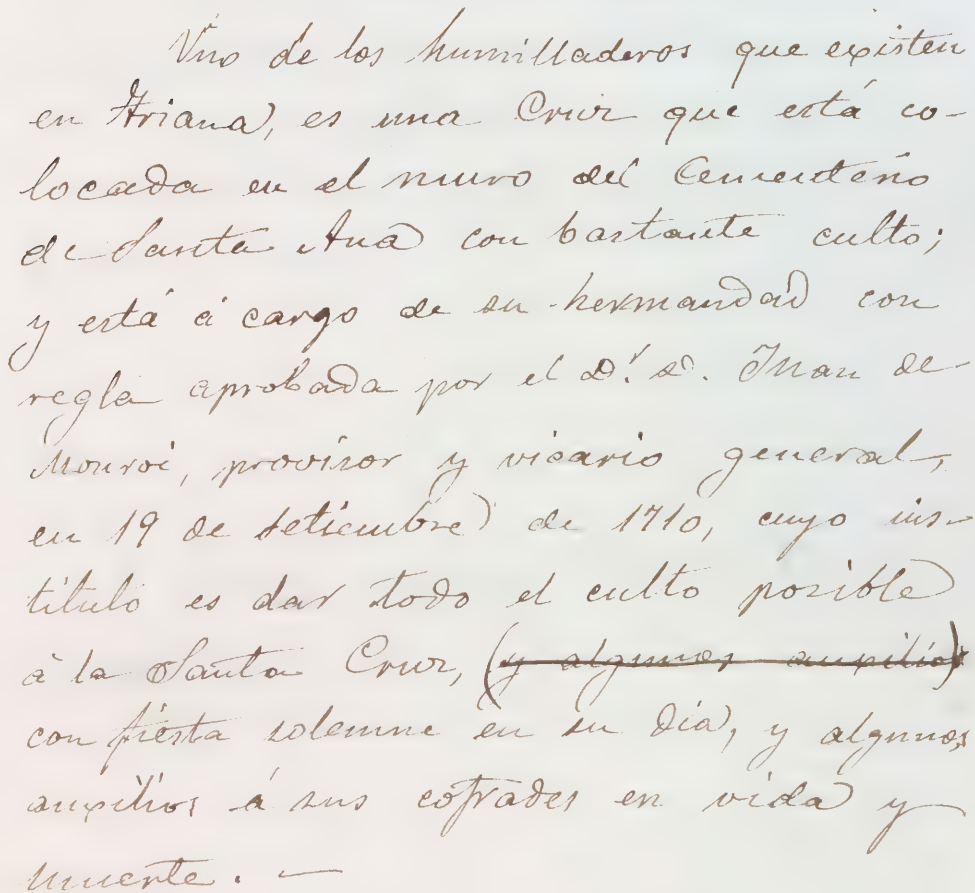 Uno de los humilladeros que existen
en Triana, es una Cruz que está co-
locada en el muro del Cementerio
de Santa Ana con bastante culto;
y está á cargo de su hermandad con
regla aprobada por el Dr. D. Juan de
Monroi, provisor y vicario general,
en 19 de setiembre de 1710, cuyo ins-
tituto es dar todo el culto posible
á la Santa Cruz, (y algunos auxilios)
con fiesta solemne en su dia, y algunos
auxilios á sus cofrades en vida y
muerte. —